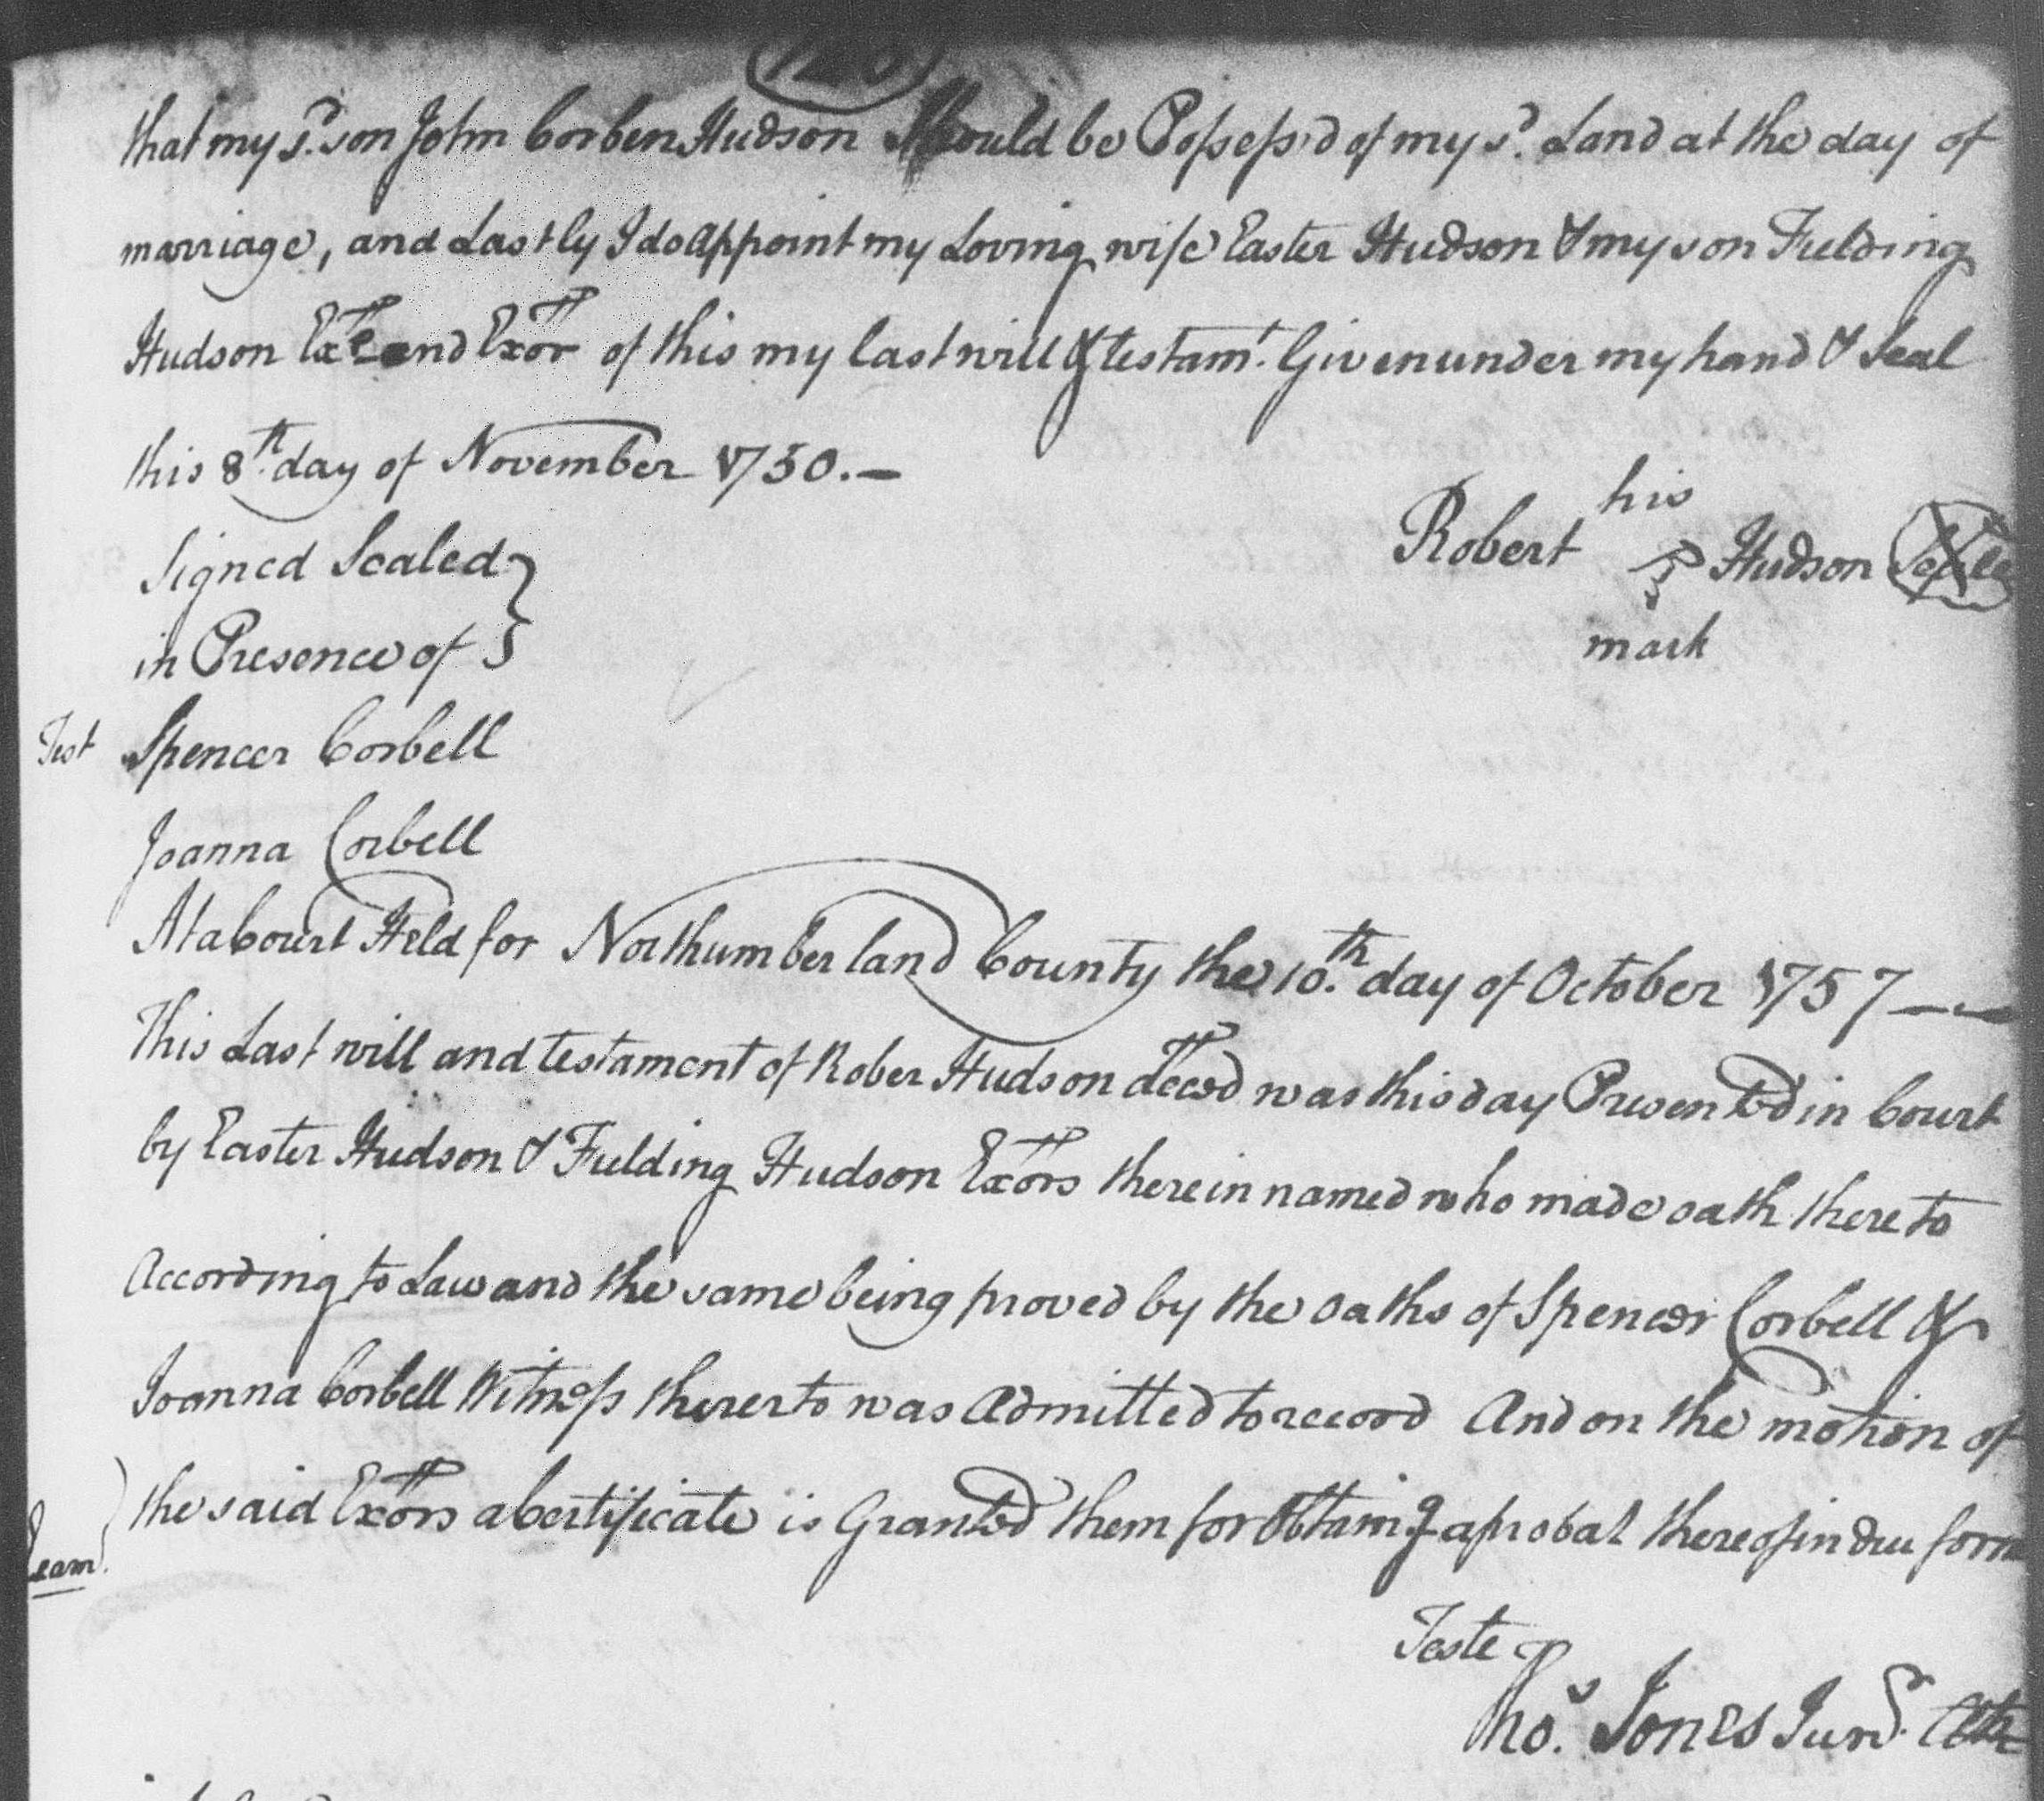 that my sd. son John Corben Hudson Should be Possess'd of my sd. Land at the day of
marriage, and Lastly I do Appoint my Loving wife Easter Hudson & my son Fielding
Hudson Exe and Exor of this my last will & testamt. Given under my hand & Seal
this 8th. day of November 1750.—
his
Robert Hudson Seale
mark
Signed Sealed }
in Presence of }
Test Spencer Corbell
Joanna Corbell
At a Court Held for Northumberland County the 10th. day of October 1757 —
This Last will and testament of Rober Hudson decd was this day Presented in Court
by Easter Hudson & Fielding Hudson Exors therein named who made oath thereto
According to Law and the same being proved by the oaths of Spencer Corbell &
Joanna Corbell Witness thererto was Admitted to record And on the motion of
the said Exors a Certificate is Granted them for Obtaing a probat thereof in due form
Exam.
Teste
Thos. Jones Junr.